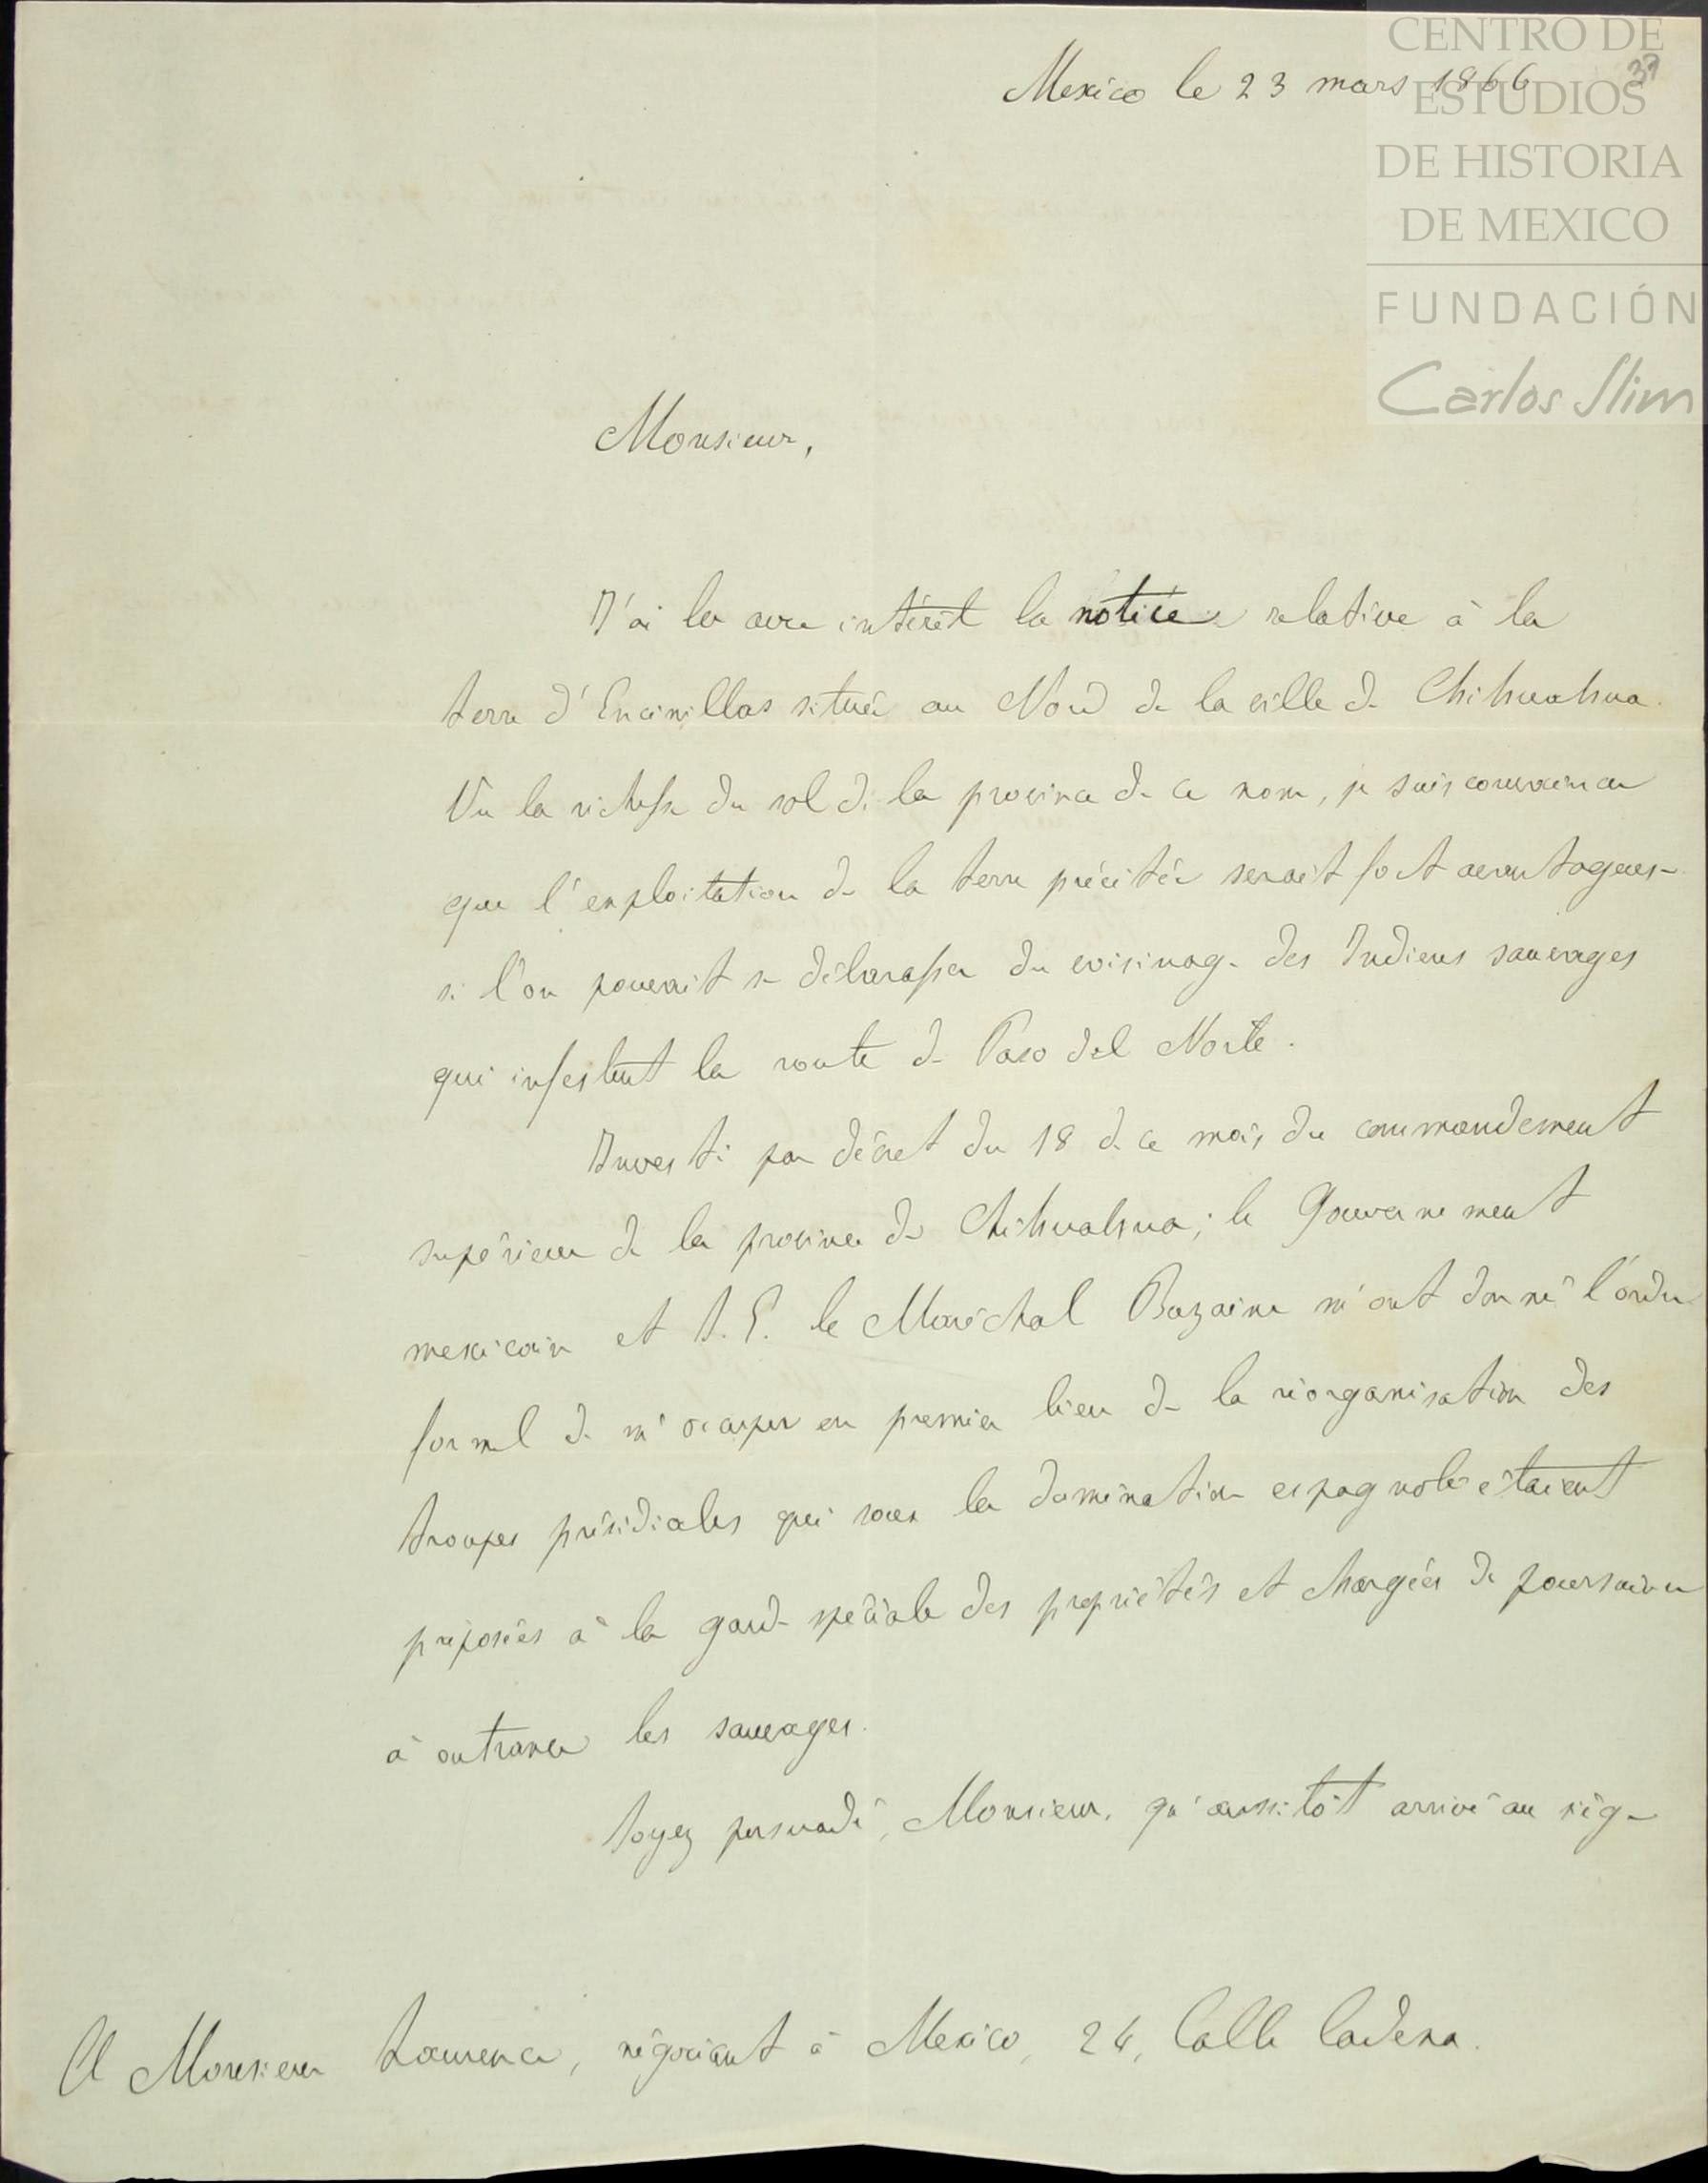 Mexico le 23 mars 1866
37
CENTRO DE
ESTUDIOS
DE HISTORIA
DE MEXICO
FUNDACIÓN
Carlos Slim
Monsieur,
J'ai lu avec intérêt la notice relative à la
terre d'Encinillas située au Nord de la ville de Chihuahua.
Vu la richesse du sol de la province de ce nom, je suis convaincu
que l'exploitation de la terre précitée serait fort avantageuse
si l'on pouvait se débarasser du voisinage des Indiens sauvages
qui infestent la route de Paso del Norte.
Investi par décret du 18 de ce mois du commandement
supérieur de la province de Chihuahua; le Gouvernement
mexicain et S. E. le Maréchal Bazaine m'ont donné l'ordre
formel de m'occuper en premier lieu de la réorganisation des
troupes présidiales qui sous la domination espagnole étaient
préposées à la garde spéciale des propriétés et chargées de poursuivre
à outrance les sauvages.
Soyez persuadé, Monsieur, qu'aussitôt arrivé au siège
A Monsieur Laurence, négociant à Mexico, 24, Calle Cadena.